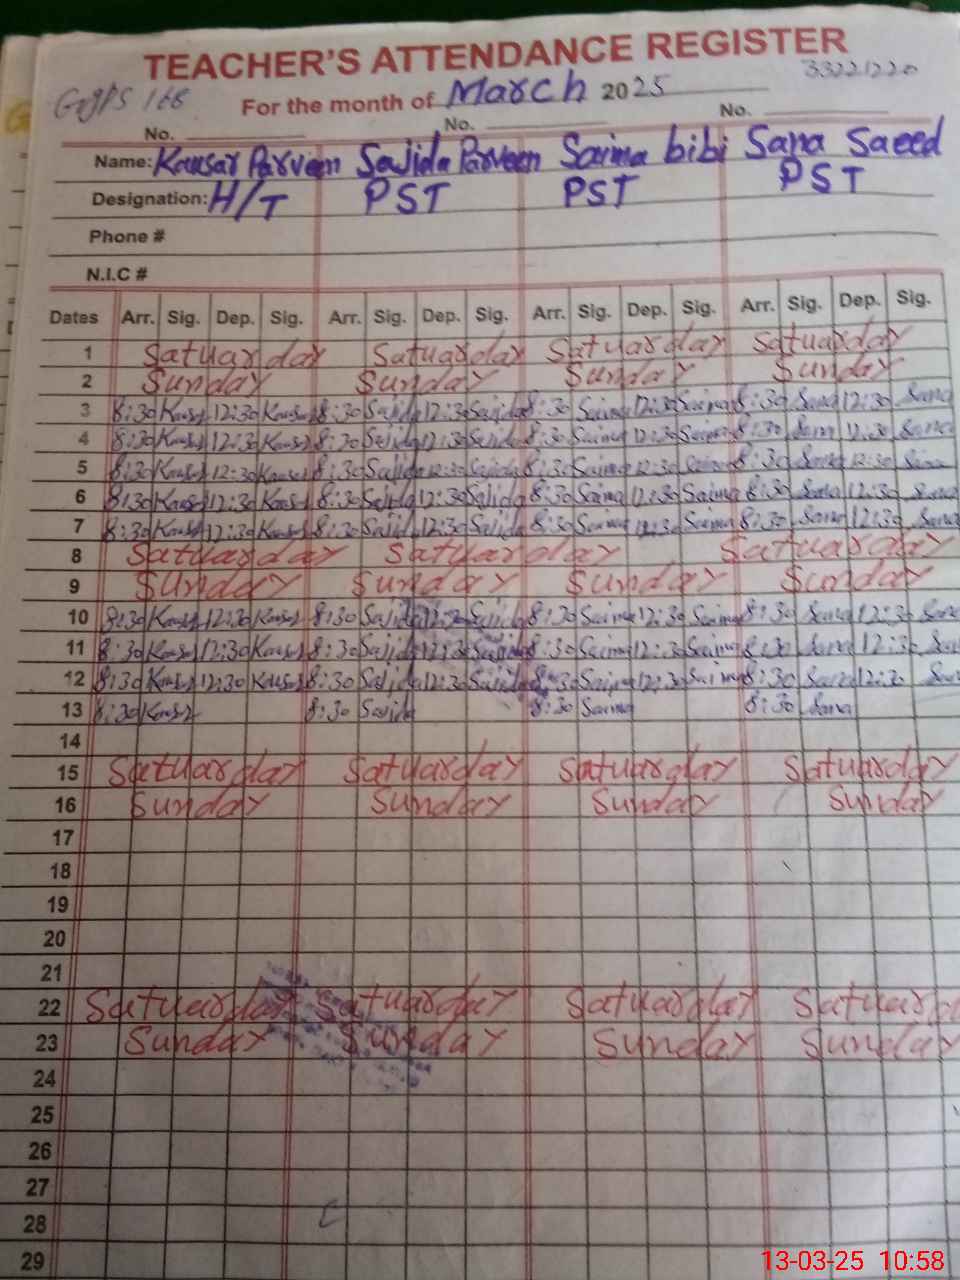 TEACHER'S ATTENDANCE REGISTER
33221220
GGPS 168 For the month of March 2025
No. No. No.
Name: Kausar Parveen Sajida Parveen Saima bibi Sana Saeed
Designation: H/T PST PST PST
Phone #
N.I.C #
Dates Arr. Sig. Dep. Sig. Arr. Sig. Dep. Sig. Arr. Sig. Dep. Sig. Arr. Sig. Dep. Sig.
1 Satuarday Satuarday Satuarday Satuarday
2 Sunday Sunday Sunday Sunday
3 8:30 Kausar 12:30 Kausar 8:30 Sajida 12:30 Sajida 8:30 Saima 12:30 Saima 8:30 Sana 12:30 Sana
4 8:30 Kausar 12:30 Kausar 8:30 Sajida 12:30 Sajida 8:30 Saima 12:30 Saima 8:30 Sana 12:30 Sana
5 8:30 Kausar 12:30 Kausar 8:30 Sajida 12:30 Sajida 8:30 Saima 12:30 Saima 8:30 Sana 12:30 Sana
6 8:30 Kausar 12:30 Kausar 8:30 Sajida 12:30 Sajida 8:30 Saima 12:30 Saima 8:30 Sana 12:30 Sana
7 8:30 Kausar 12:30 Kausar 8:30 Sajida 12:30 Sajida 8:30 Saima 12:30 Saima 8:30 Sana 12:30 Sana
8 Satuarday Satuarday Satuarday
9 Sunday Sunday Sunday Sunday
10 8:30 Kausar 12:30 Kausar 8:30 Sajida 12:30 Sajida 8:30 Saima 12:30 Saima 8:30 Sana 12:30 Sana
11 8:30 Kausar 12:30 Kausar 8:30 Sajida 12:30 Sajida 8:30 Saima 12:30 Saima 8:30 Sana 12:30 Sana
12 8:30 Kausar 12:30 Kausar 8:30 Sajida 12:30 Sajida 8:30 Saima 12:30 Saima 8:30 Sana 12:30 Sana
13 8:30 Kausar 8:30 Sajida 8:30 Saima 8:30 Sana
14
15 Satuarday Satuarday Satuarday Satuarday
16 Sunday Sunday Sunday Sunday
17
18
19
20
21
22 Satuarday Satuarday Satuarday Satuarday
23 Sunday Sunday Sunday Sunday
24
25
26
27
28
29
13-03-25 10:58